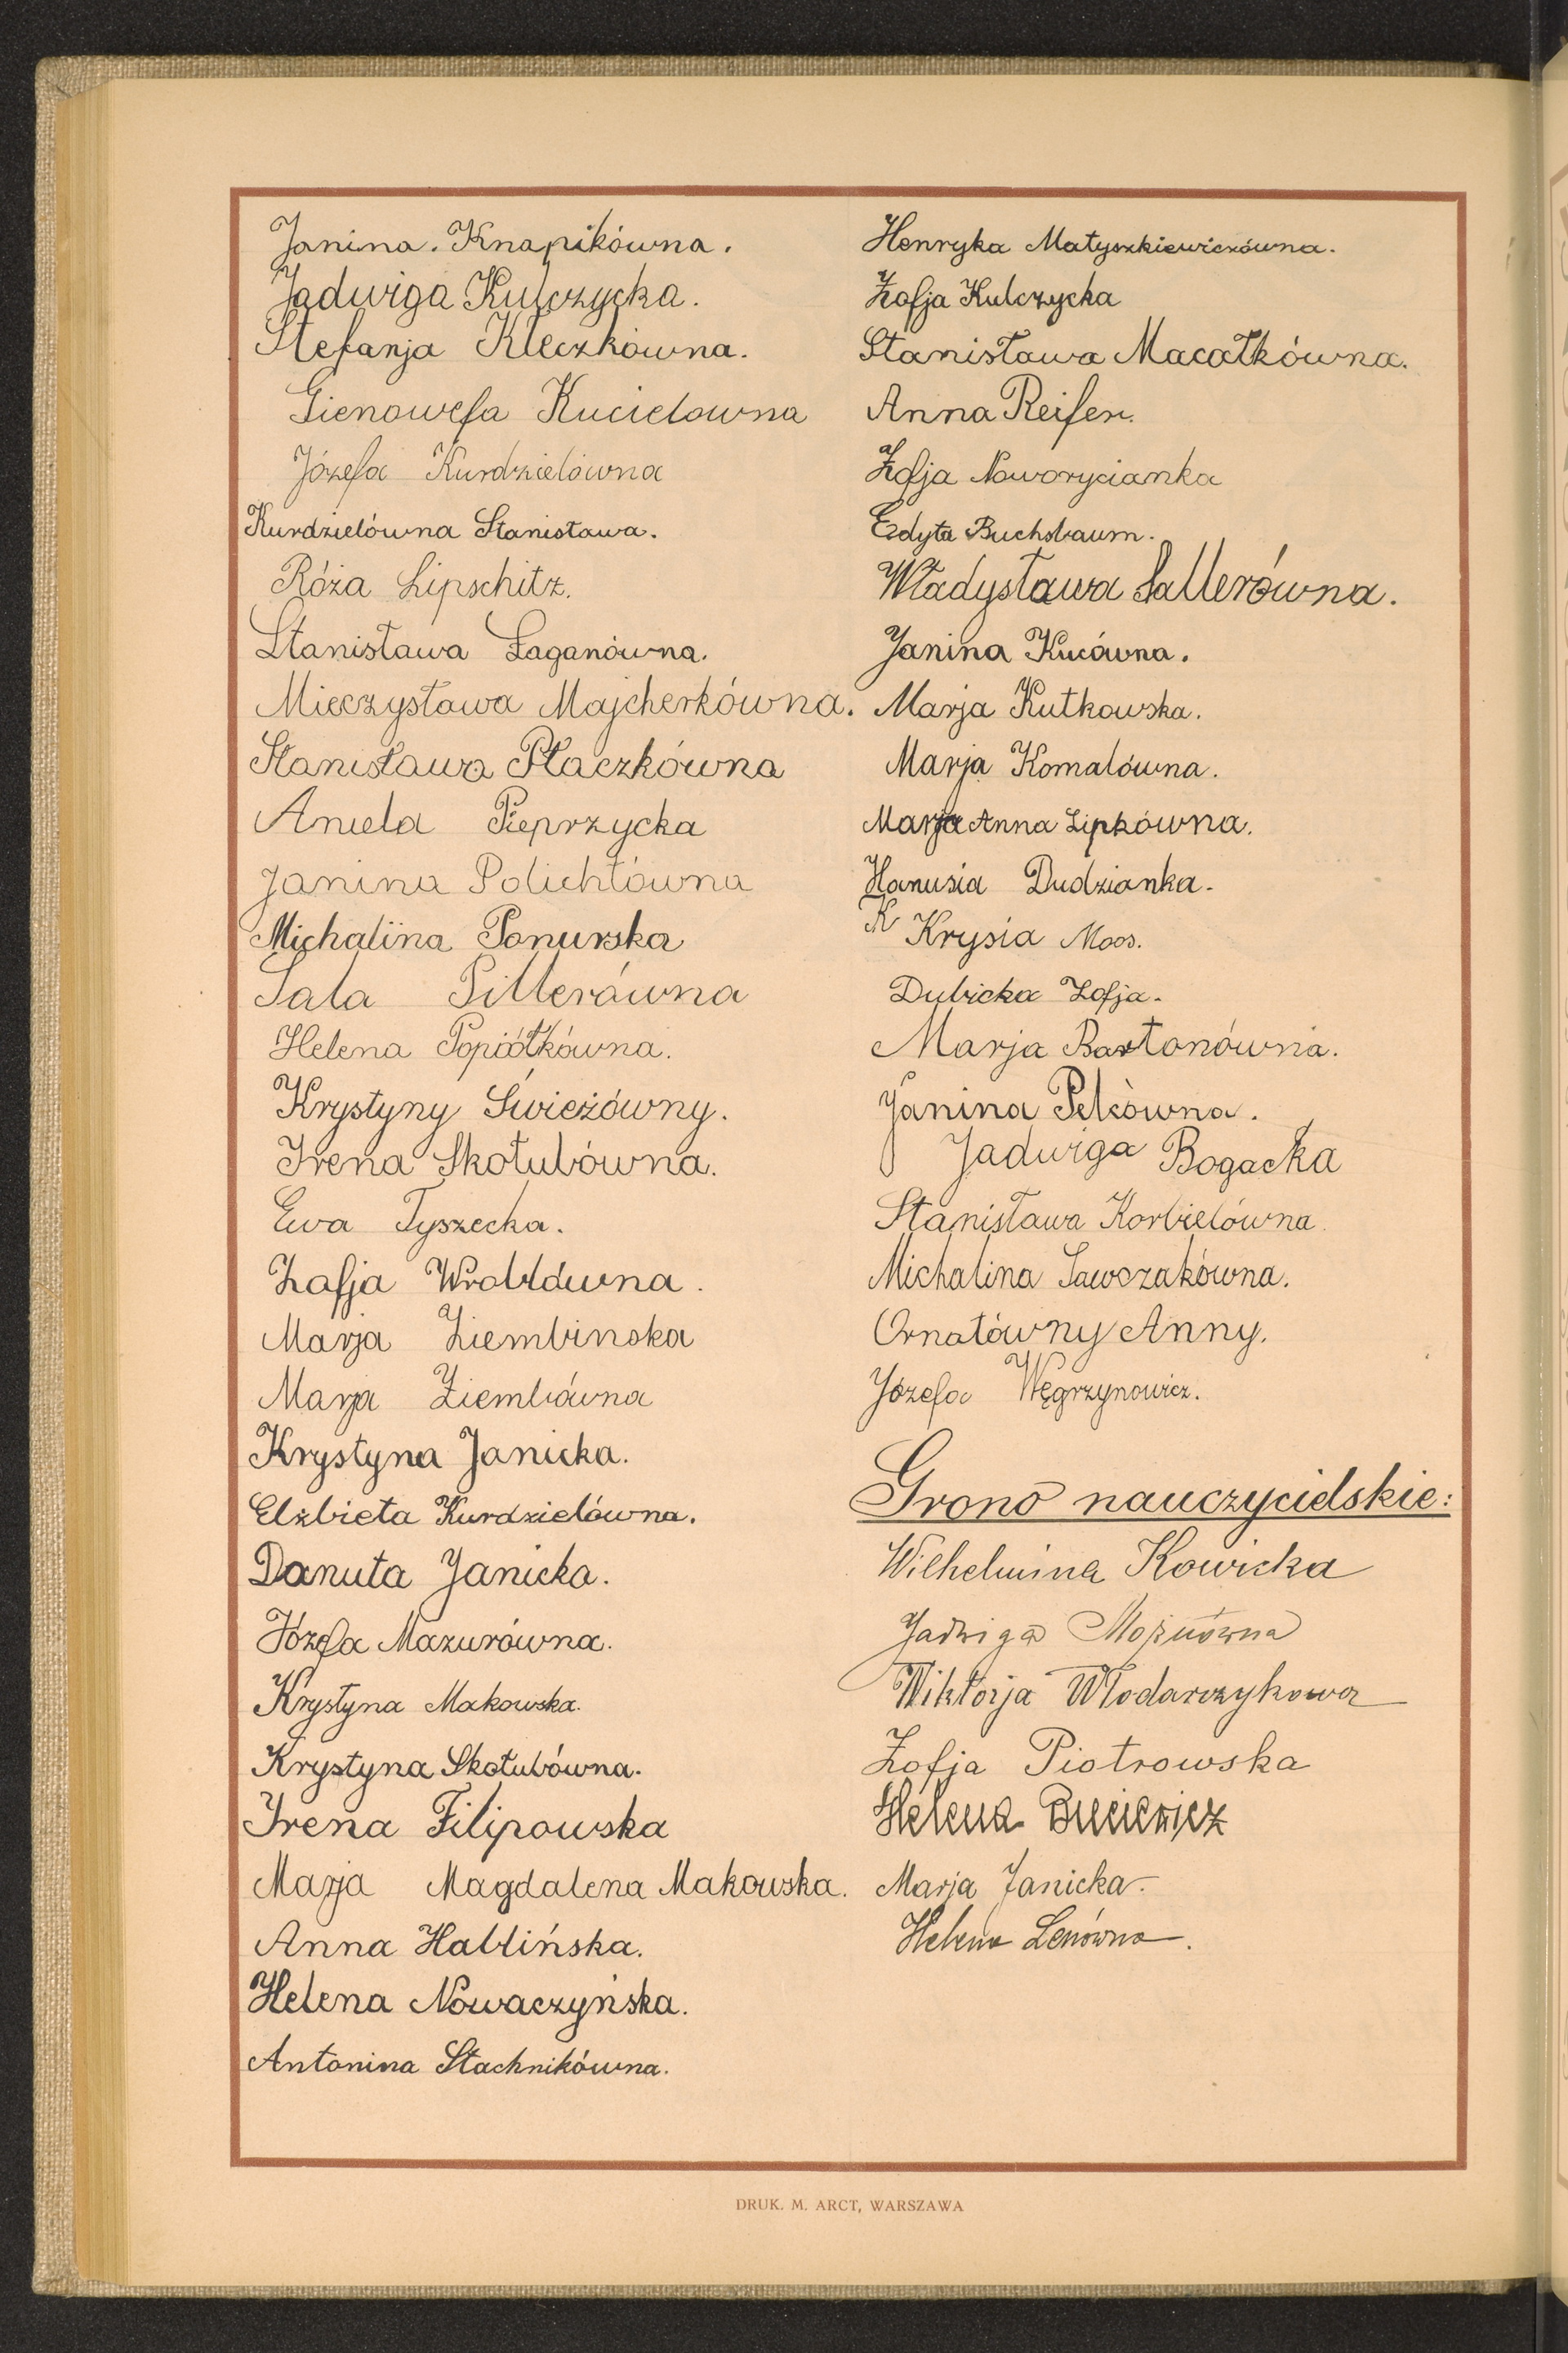 Janina. Knapikówna.
Jadwiga Kulczycka.
Stefanja Kleczkówna.
Gienowefa Kucielowna
Józefa Kurdzielówna
Kurdzielówna Stanisława.
Róża Lipschitz.
Stanisława Łaganówna.
Mieczysława Majcherkówna.
Stanisława Płaczkówna
Aniela Pieprzycka
Janina Polichtówna
Michalina Ponurska
Sala Pillerówna
Helena Popiółkówna.
Krystyny Świeżówny.
Irena Skotubówna.
Ewa Tyszecka.
Zofja Wrobldwna.
Marja Ziembinska
Marja Ziembówna
Krystyna Janicka.
Elżbieta Kurdzielówna.
Danuta Janicka.
Józefa Mazurówna.
Krystyna Makowska.
Krystyna Skotubówna.
Irena Filipowska
Marja Magdalena Makowska.
Anna Hablińska.
Helena Nowaczyńska.
Antonina Stachnikówna.
Henryka Matyszkiewiczówna.
Zofja Kulczycka
Stanisława Macałkówna.
Anna Reifer.
Zofja Noworycianka
Edyta Buchsbaum.
Władysława Sallerówna.
Janina Kucówna.
Marja Kutkowska.
Marja Komalówna.
Marja Anna Lipkówna.
Hanusia Dudzianka.
K Krysia Moos.
Dubicka Zofja.
Marja Bartonówna.
Janina Pelcówna.
Jadwiga Bogacka
Stanisława Korbielówna.
Michalina Sawczakówna.
Ornatówny Anny.
Józefa Węgrzynowicz.
Grono nauczycielskie:
Wilhelmina Kowicka
Jadwiga
Wiktorja Włodarczykowa
Zofja Piotrowska
Helena
Marja Janicka.
Helena Lenówna.
DRUK. M. ARCT, WARSZAWA